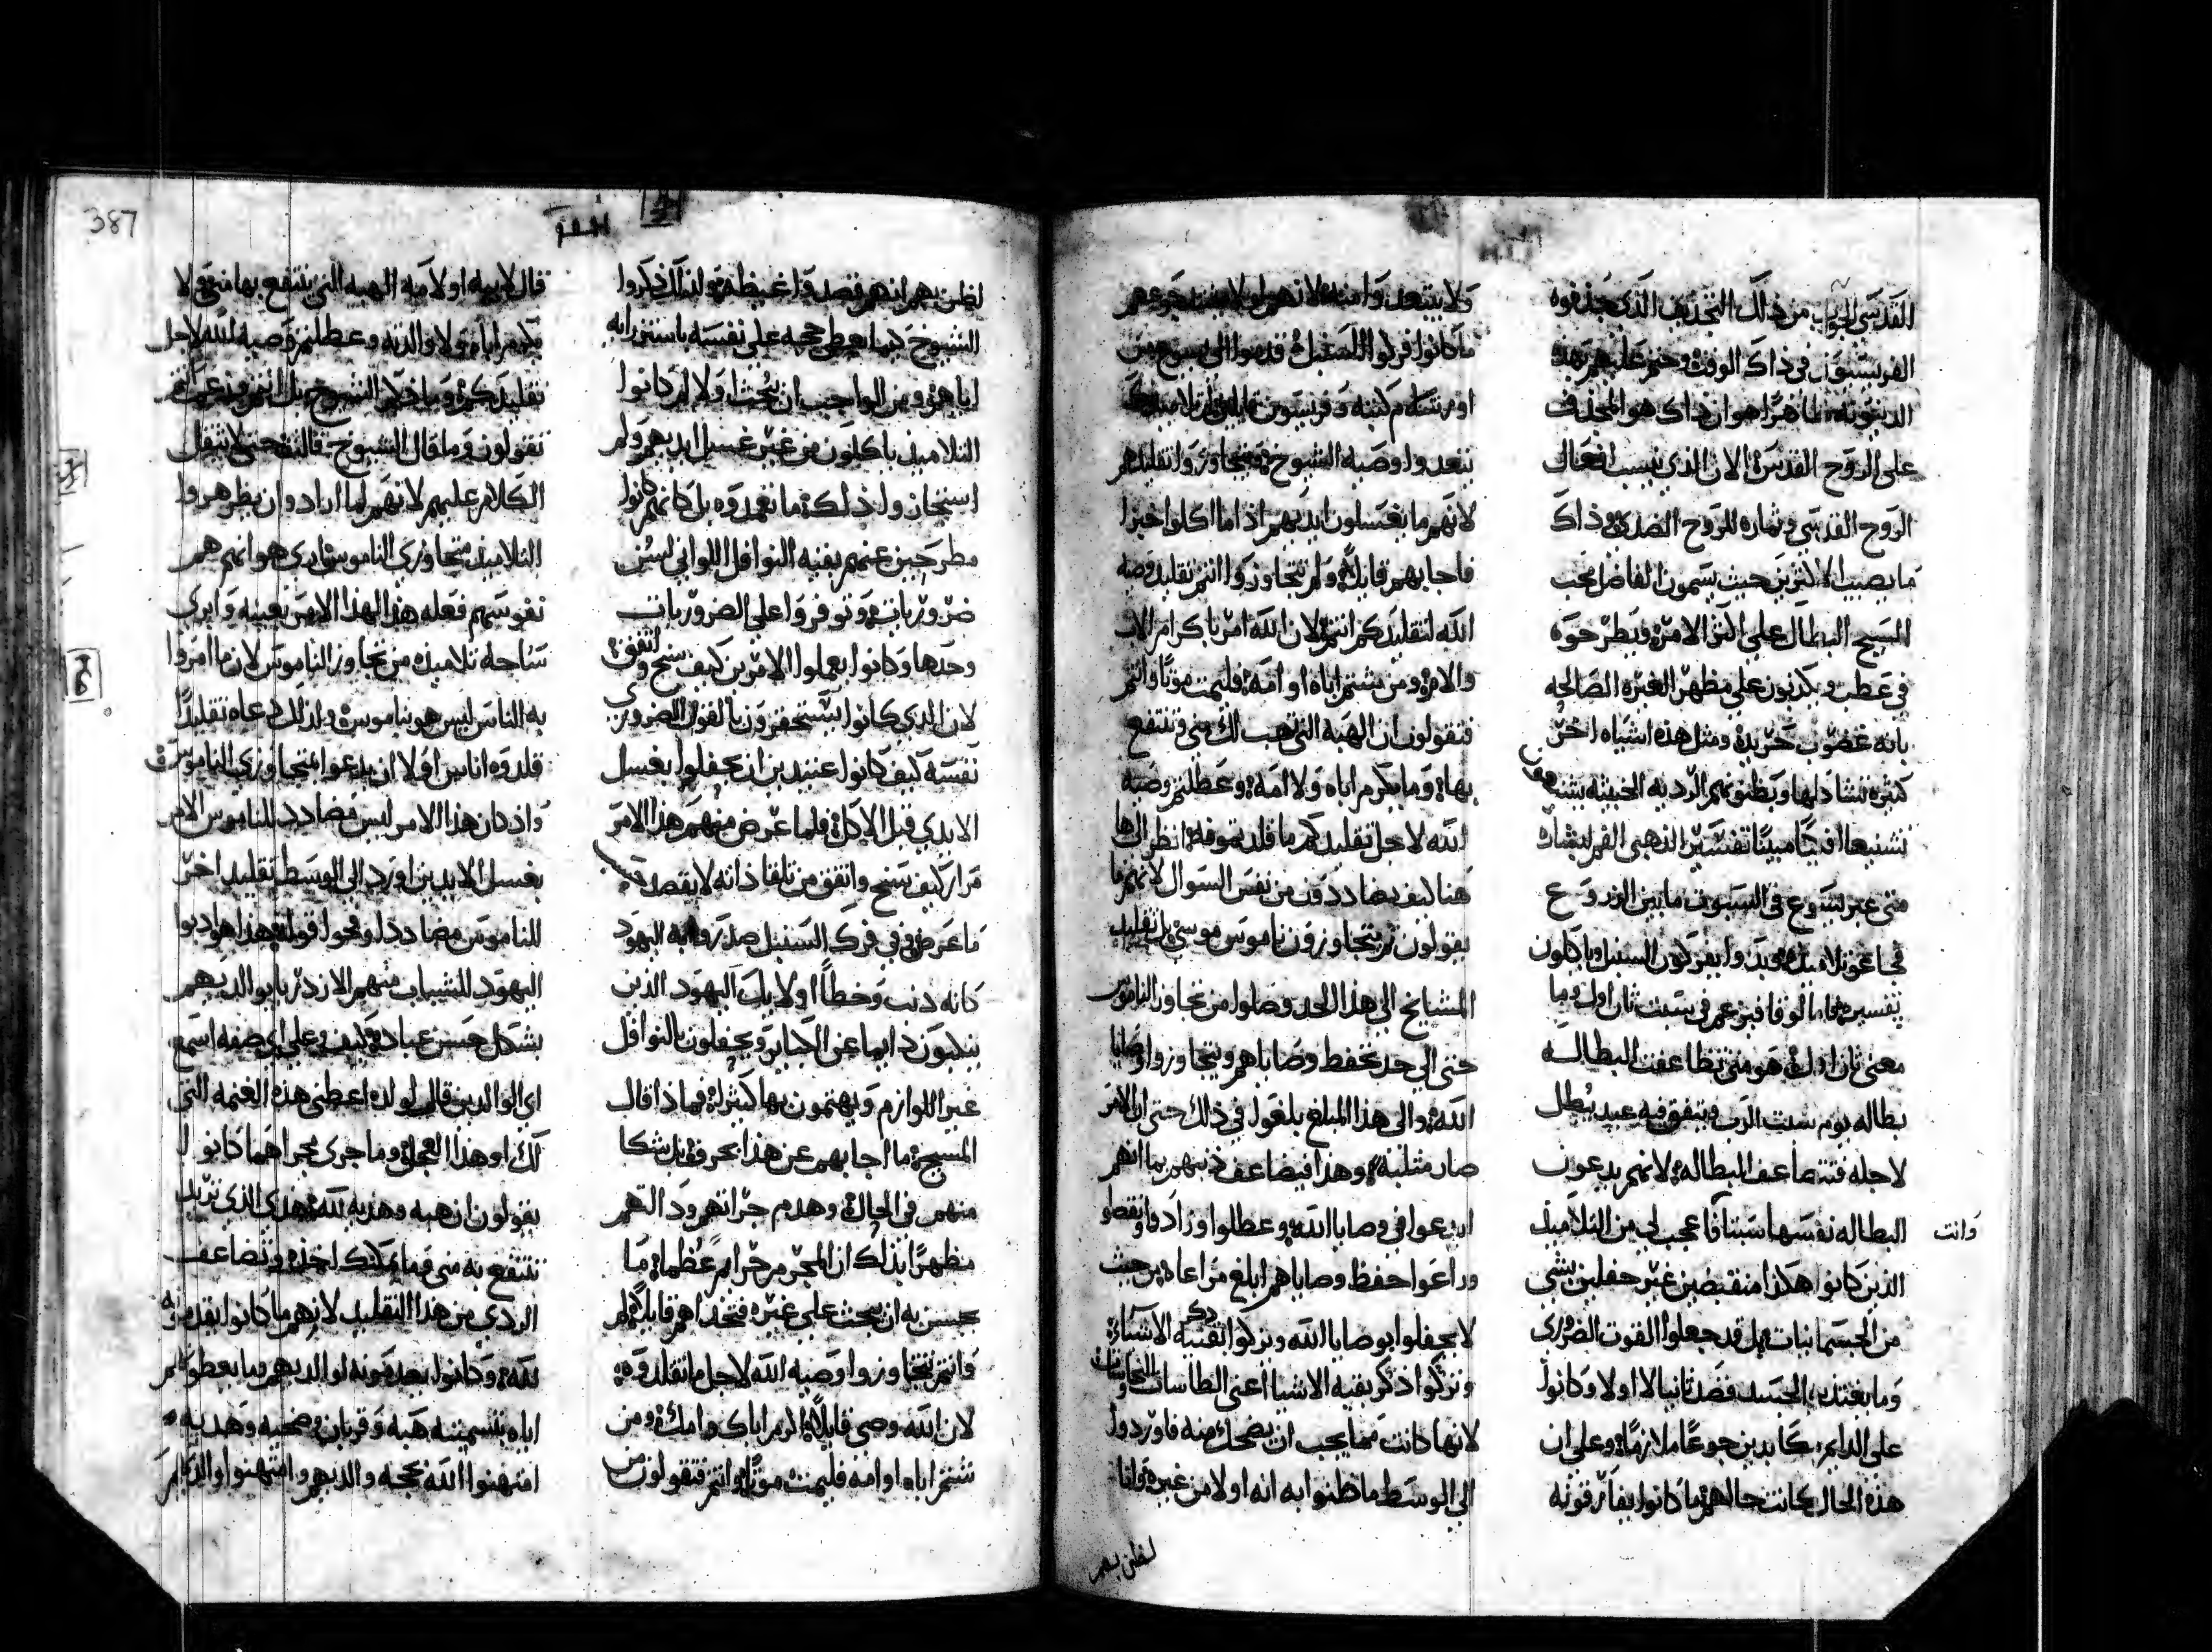 القدسي الجواب من ذلك التجديف الذي جذفوه
الفريسيون في ذاك الوقت وختم عليهم بهذه
الدينونه ظاهرًا هو ان ذاك هو المجذف
على الروح القدس الان الذي ينسب افعال
الروح القدسي وثماره للروح الضدي وذاك
ما يصيب الاكثرين حيث يسمون الفاضل محب
المسيح البطال على اكثر الامر ويطرحوه
في عطب ويكذبون على مظهر الغيره الصالحه
بانه غضوب حريد ومثل هذه اشياه اخر
كثيره
تشنيعا افكيًا مبينًا تفسير الذهبي الفم لبشاره
متى عبر يسوع في السبوت ما بين الزروع
فجاعو تلاميذه فبدوا يفركون السنبل وياكلون
تفسير فاما لوقا فيزعم في سبت ثان اول وما
معنى ثان اول هو متى تضاعفت البطاله
بطاله يوم سبت الرب ويتفق فيه عيد يُبطل
لاجله فتتضاعف البطاله لانهم يدعون
البطاله نفسها سبتا فاعجب لي من التلاميذ
وانت
الذين كانوا هكذا منقبضين غير حفلين بشي
من الجسمانيات بل قد جعلوا القوت الضروري
وما يغتذيه الجسد فضد ثانيا لا اولا وكانوا
على الدايم يكابدين جوعًا ملازمًا وعلى ان
هذه الحال كانت حالهم ما كانوا يفارقونه
ولا يبتعدوا منه لانهم لولا شدت جوعهم
ما كانوا فركوا السنبل قدموا الى يسوع من
اورشليم كتبه وفريسيون قايلين ان تلاميذك
يتعدوا وصيه الشيوخ ويتجاوزوا تقليدهم
لانهم ما يغسلون ايديهم اذا ما اكلوا خبزا
فاجابهم قايلاً ولم تتجاوزوا انتم تقليد وصيه
الله لتقليدكم انتم لان الله امر باكرام الاب
والام ومن يشتم اباه او امه فليمت موتًا وانتم
فتقولون ان الهبه التي تهب لك مني فتنتفع
بها وما يكرم اباه ولا امه وعطلتم وصيه
الله لاجل تقليدكم ما قلدتموه انظر الى ها
هنا كيف يضاددون من نفس السوال لانهم ما
يقولون لم يتجاوزون ناموس موسى بل تقليد
المشايخ الى هذا الحد وصلوا من تجاوز الناموس
حتى الى حد تحفظ وصاياهم ويتجاوزوا وصايا
الله والى هذا المبلغ بلغوا في ذلك حتى ان الامر
صار مثلبة وهذا فيضاعف ذنبهم بما انهم
ابدعوا في وصايا الله وعطلوا وزادوا ونقصوا
وراعوا حفظ وصاياهم ابلغ مراعاه من حيث
لا يحفلوا بوصايا الله وتركوا ذكر بقيه الاشياء
وتركوا ذكر بقيه الاشيا اعني الطاسات والنحاسيات
لانها كانت مما يجب ان يضحك منه فاوردوا
الى الوسط ما ظنوا به انه اولا من غيره واما
لظن بهم
لظن بهم انهم تصدوا غيظه ولذلك ذكروا
الشيوخ كيما يعطي حجه على نفسه باستزرايه
اياهم ومن الواجب ان يُبحث ولا لم كانوا
التلاميذ ياكلون من غير غسيل ايديهم ولم
استجازوا ذلك ما تعمدوه بل كانهم كانوا
مطرحين عنهم بقيه النوافل اللواتي ليس
ضروريات وتوفروا على الضروريات
وحدها وكانوا يعملوا الامرين كيف سنح واتفق
لان الذي كانوا يستحقرون بالقول الضروري
نفسه كيف كانوا عتيدين ان يحفلوا بغسل
الايدي قبل الاكل فلما عرض منهم هذا الامر
مرار كيف سنح واتفق من تلقا ذاته لا بقصد
ما عرض في فرك السنبل صدروا به اليهود
كانه ذنب وخطأ اولايك اليهود الذين
ينكبون دايما عن الكبار ويحفلون بالنوافل
غير اللوازم ويهتمون بها كثيرًا فماذا قال
المسيح ما اجابهم عن هذا بحرف بل شكا
منهم في الحال وهدم جراتهم ورد التهم
مظهرًا بذلك ان المجرم جرايم عُظماء ما
يحسن به ان يبحث على غيره فتخذاهم قايلاً لم
وانتم تتجاوزوا وصيه الله لاجل ما تقلدوه
لان الله وصى قايلاً اكرم اباك وامك ومن
شتم اباه او امه فليمت موتًا وانتم فتقولون من
قال لابيه او لامه الهبه التي ينتفع بها مني ولا
يكرم اباه ولا والدته وعطلتم وصيه الله لاجل
تقليدكم وما قال الشيوخ بل انتم
تقولون وما قال الشيوخ قالت حتى لا يثقل
الكلام عليهم لانهم لما ارادوا ان يظهروا
التلاميذ متجاوزي الناموس ارى هو انهم هم
نفوسهم فعله هذا لهذا الامر بعينه وابرى
ساحه تلاميذه من تجاوز الناموس لان ما امروا
به الناس ليس هو بناموس ولذلك دعاه تقليدًا
قلدوه اناس اولا ان يدعوا متجاوزي الناموس
واذ كان هذا الامر ليس مضادد للناموس الامر
بغسل الايدين اورد الى الوسط تقليد اخر
للناموس مضاددا ومحوا قوله هذا هو ادبوا
اليهود للشباب منهم الازدرا بوالديهم
بشكل حسن عباده كيف وعلى اي صفه اسمع
اي الوالدين قال لولده اعطني هذه الغنمه التي
لك او هذا العجل وما جرى مجراهما كانوا
يقولون ان هبه وهديه لله هذي الذي تريد
تنتفع به مني فما يمكنك اخذه وتضاعف
الردي من هذا التقليد لانهم ما كانوا يقدمونه
لله وكانوا يعدمونه لوالديهم وما يعطوا
اياه بتسميته هبه وقربان وضحيه وهديه
امتهنوا الله بحجه والديهم وامتهنوا والديهم
387